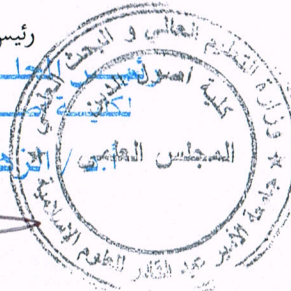 رئيس
رئيس المجلس
لكلية
أ.د / الز
وزارة التعليم العالي و البحث العلمي
كلية أصول الدين
المجلس العلمي
جامعة الأمير عبد القادر للعلوم الإسلامية